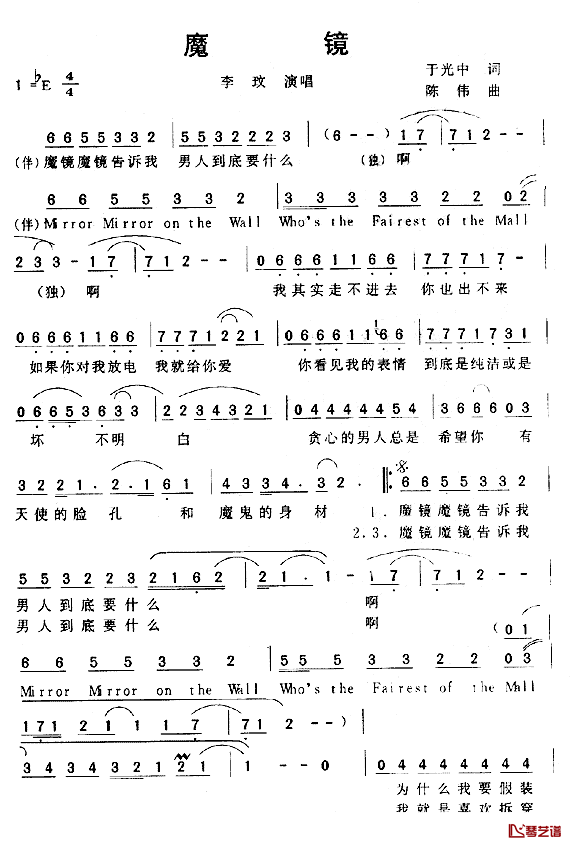 魔 镜
1=♭E 4/4
李玟 演唱
于光中 词
陈伟 曲
6 6 5 5 3 3 2 | 5 5 3 2 2 2 3 | (6 - -) 1 7 | 7 1 2 - - |
(伴)魔镜魔镜告诉我 男人到底要什么 (独)啊
6 6 5 5 3 3 2 | 3 3 3 3 3 2 2 0 2 |
(伴)Mirror Mirror on the Wall Who's the Fairest of the Mall
2 3 3 - 1 7 | 7 1 2 - - | 0 6 6 6 1 1 6 6 | 7 7 7 1 2 1 7 - |
(独)啊 我其实走不进去 你也出不来
0 6 6 6 1 1 6 6 | 7 7 7 1 2 2 1 | 0 6 6 6 1 1 6 6 | 7 7 7 1 7 3 1 |
如果你对我放电 我就给你爱 你看见我的表情 到底是纯洁或是
0 6 6 5 3 6 3 3 | 2 2 3 4 3 2 1 | 0 4 4 4 4 4 5 4 | 3 6 6 6 0 3 |
坏 不明 白 贪心的男人总是 希望你 有
3 2 2 1 . 2 . 1 6 1 | 4 3 3 4 . 3 2 . | 6 6 5 5 3 3 2 |
天使的脸 孔 和 魔鬼的身 材 1. 魔镜魔镜告诉我
2.3. 魔镜魔镜告诉我
5 5 3 2 2 3 | 2 1 6 2 | 2 1 . 1 - | - 1 7 | 7 1 2 - - |
男人到底要什么 啊
男人到底要什么 啊
(0 1
6 6 5 5 3 3 2 | 5 5 5 3 3 2 2 0 3 |
Mirror Mirror on the Wall Who's the Fairest of the Mall
1 7 1 2 1 1 1 7 | 7 1 2 - - )
3 4 3 4 3 2 1 2 1 | 1 - - 0 | 0 4 4 4 4 4 4 4 |
为什么我要假装
我就是喜欢拆穿
琴艺谱